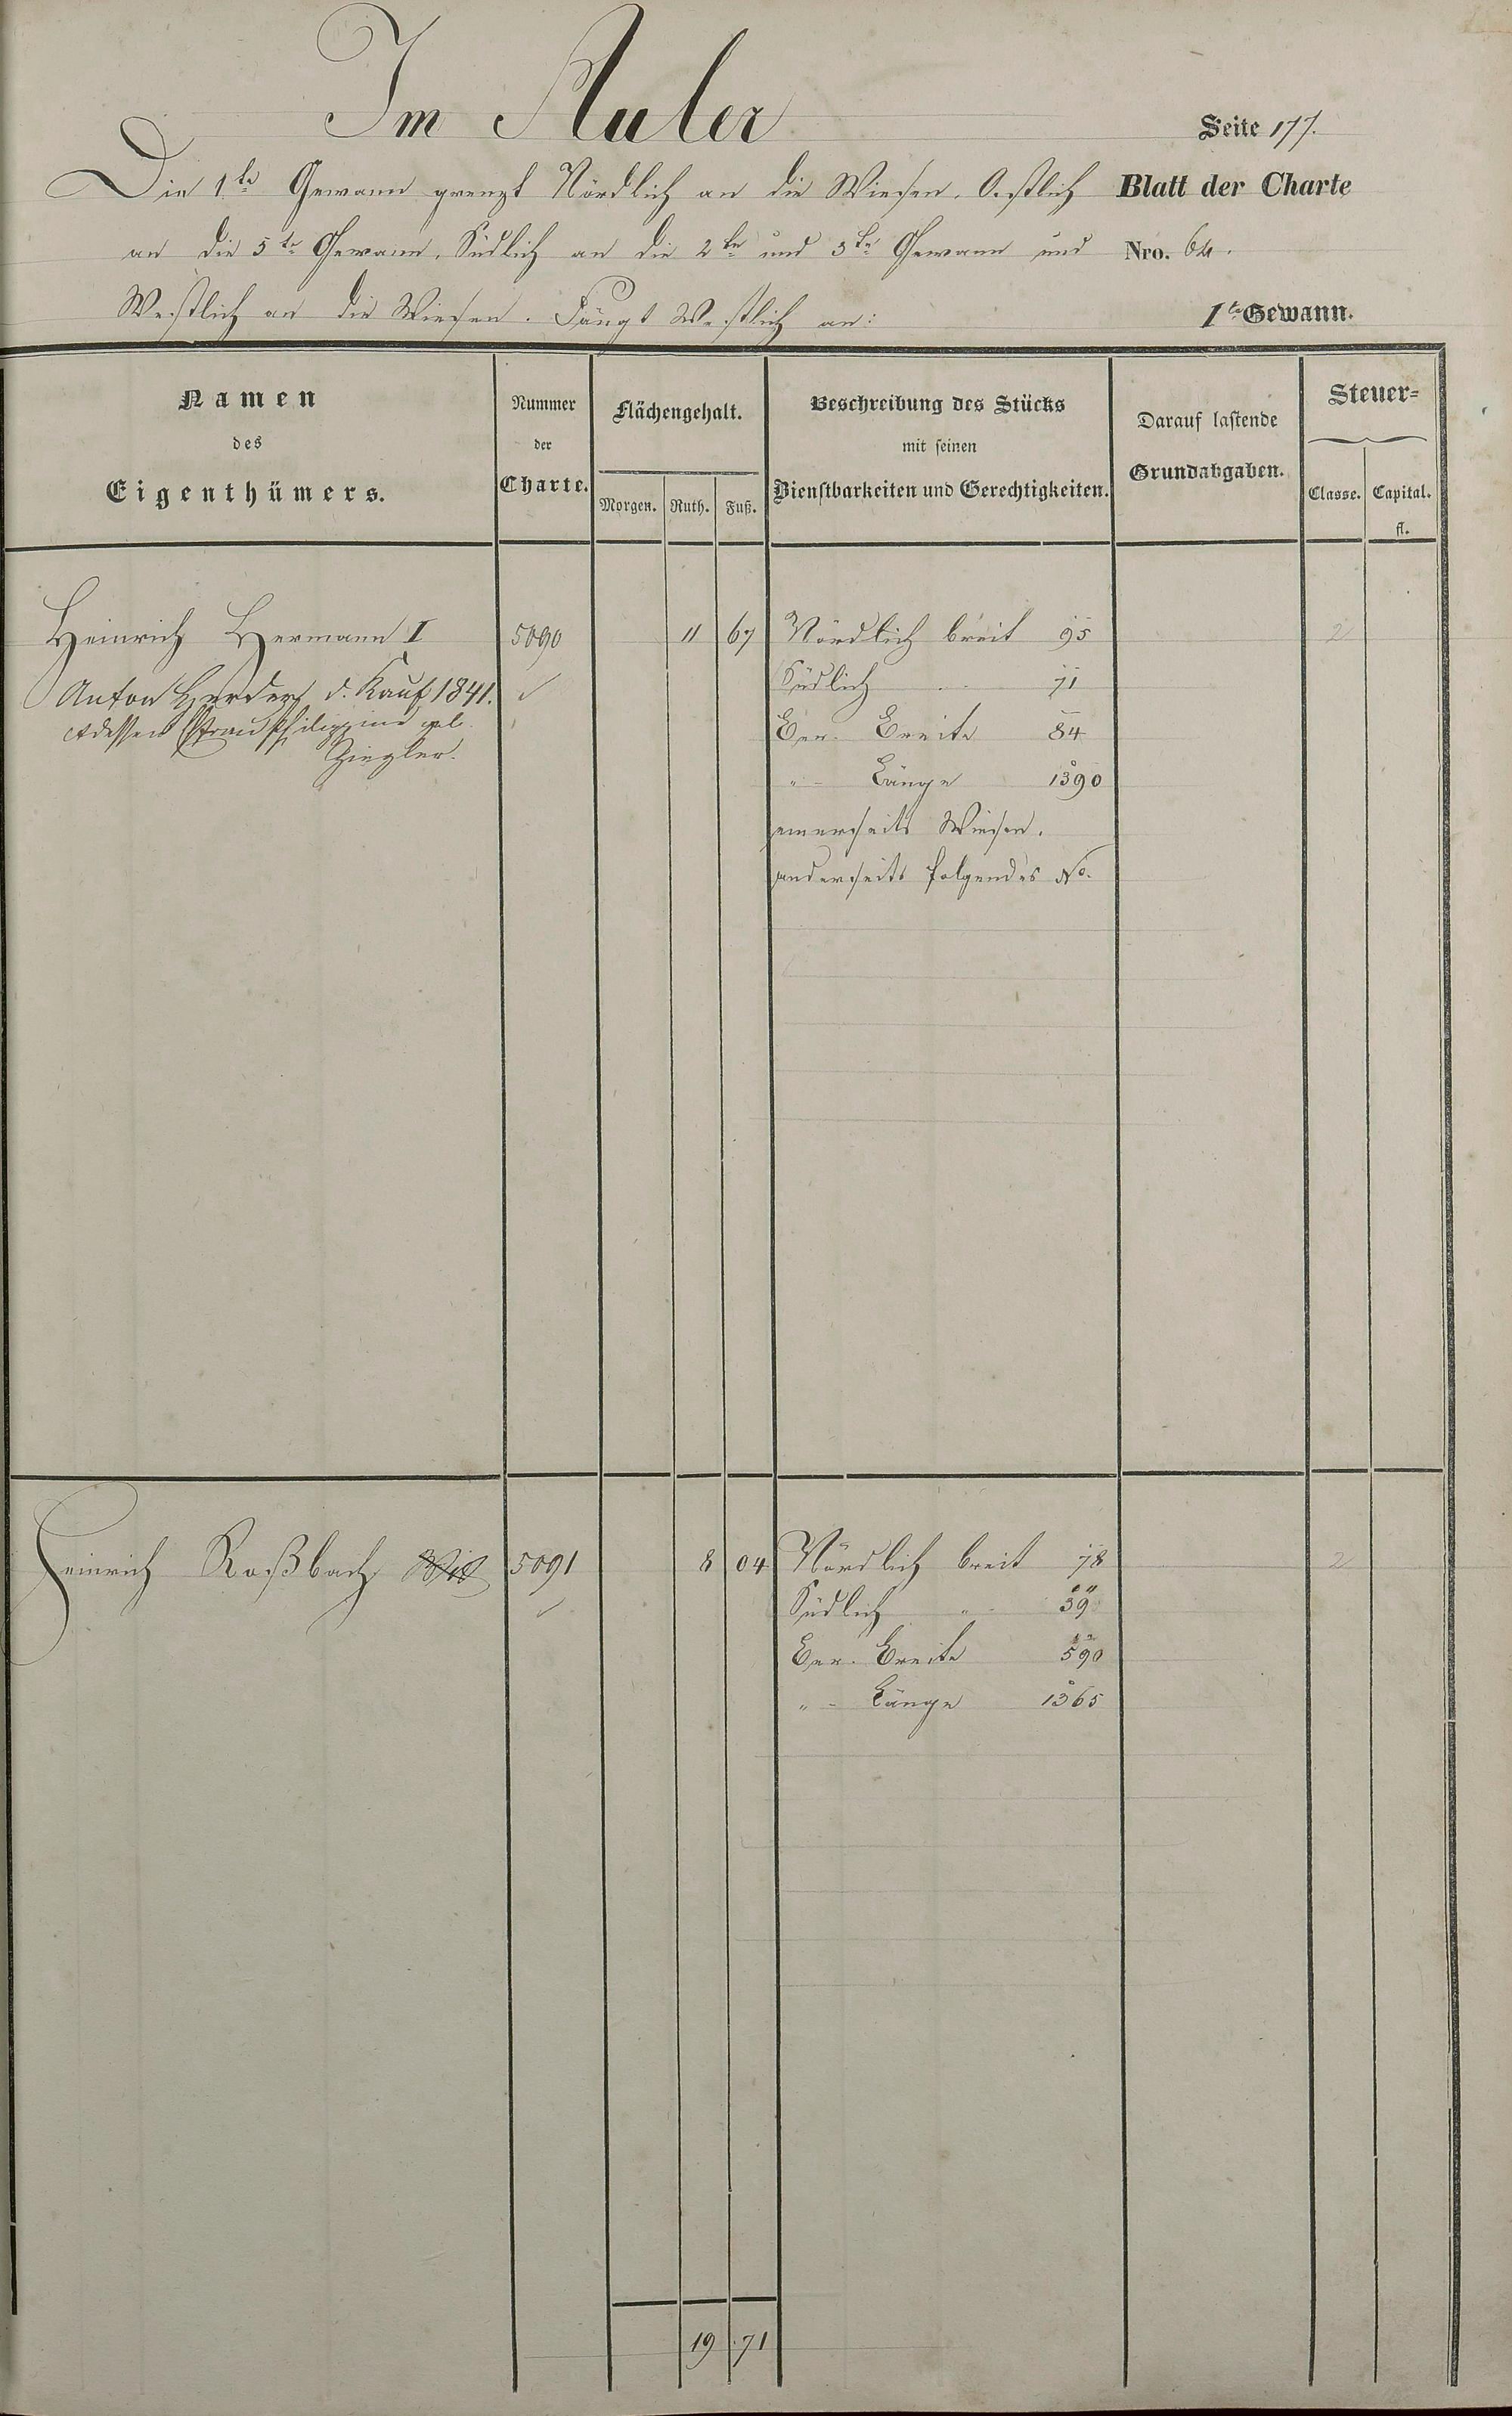 Im Auler
Seite 177.
Die 1te Gewann grenzt Nördlich an die Wiesen, Oestlich
Blatt der Charte
an die 5te Gewann, Südlich an die 2te und 3te Gewann und
Nro. 64.
Westlich an die Wiesen. Fängt Westlich an:
1te Gewann.
Namen
des
Eigenthümers.
Nummer
der
Charte.
Flächengehalt.
Morgen. Ruth. Fuß.
Beschreibung des Stücks
mit seinen
Dienstbarkeiten und Gerechtigkeiten.
Darauf lastende
Grundabgaben.
Steuer=
Classe. Capital.
fl.
Heinrich Hermann I 5090 11 67 Nördlich breit 95 2
Anton Herdert d. Kauf 1841. Südlich 71
Frau Philippine geb. Ber. Breite 84
Ziegler. " Länge 1390
einerseits Wiesen,
anderseits folgendes No.
Heinrich Roßbach 5091 8 04 Nördlich breit 78 2
Südlich " 39
Ber. Breite 590
" Länge 1365
19 71